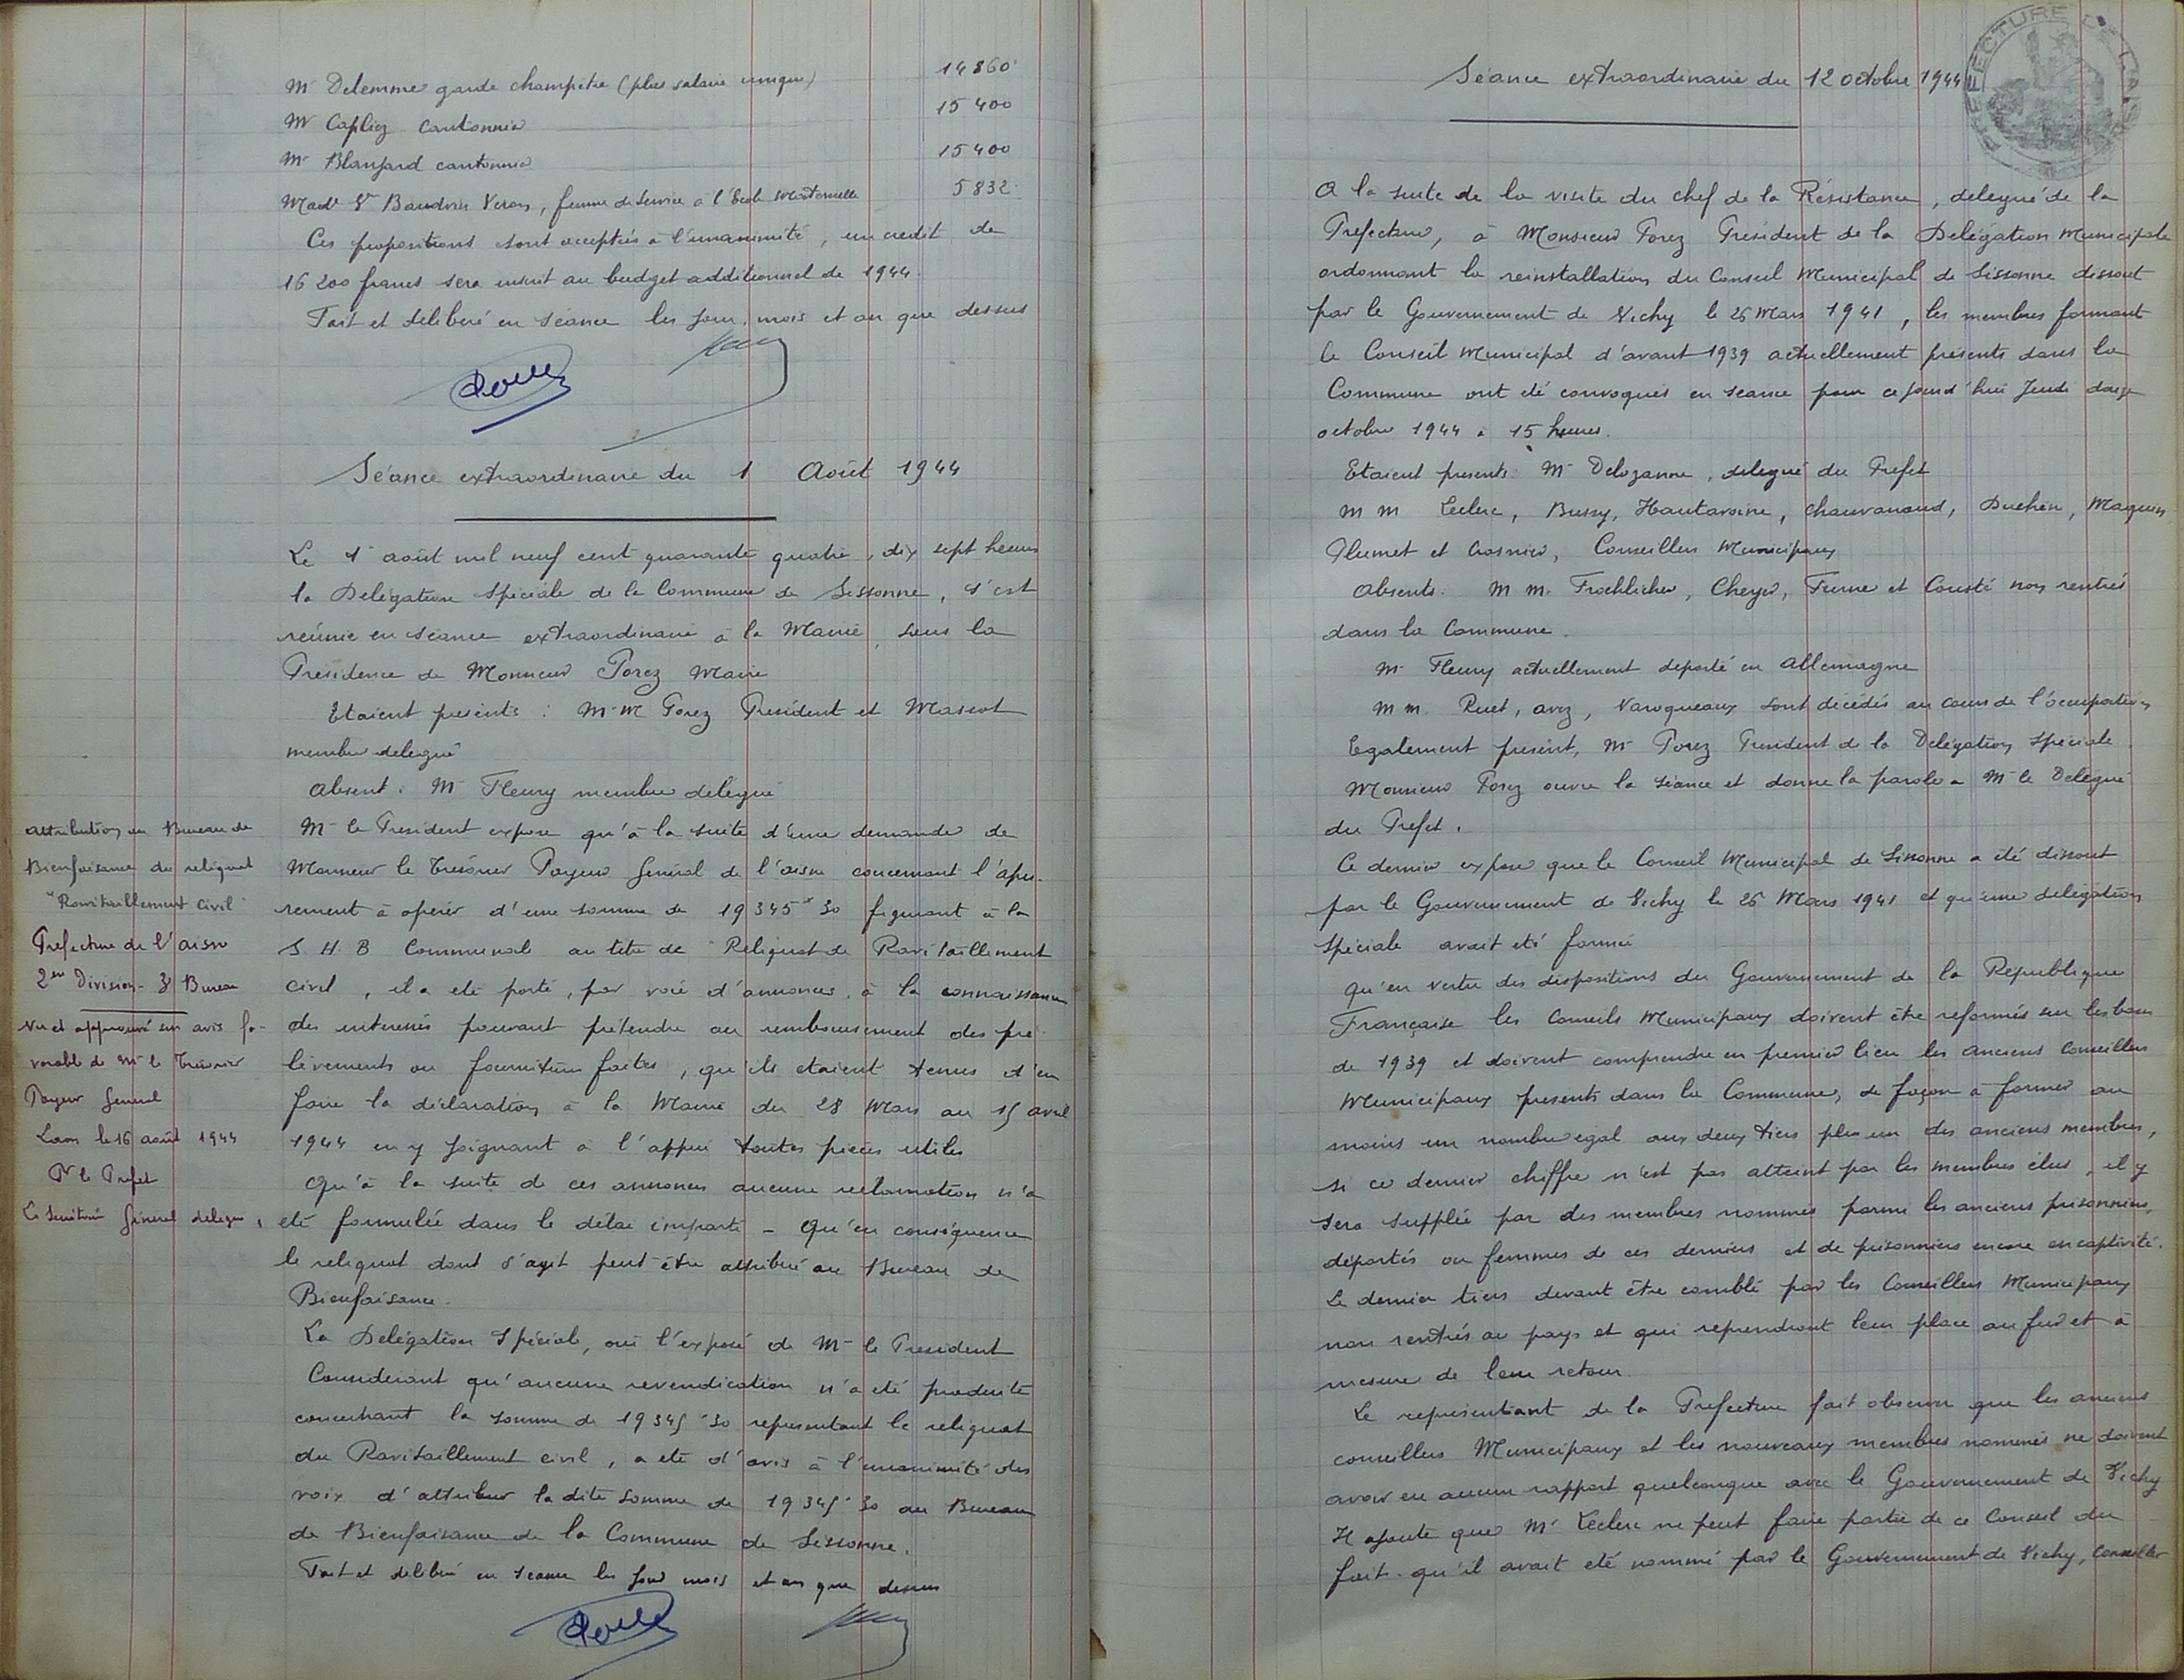 Mr Delemme garde champêtre (plus salaire unique) 14860
Mr Capliez Cantonnier 15400
Mr Blanjard cantonnier 15400
Made Vve Baudoin Veron, femme de service à l'Ecole Maternelle 5832
Ces propositions sont acceptées à l'unanimité, un credit de
16 200 francs sera inscrit au budget additionnel de 1944.
Fait et déliberé en séance les jour, mois et an que dessus
Séance extraordinaire du 1 Août 1944
Le 1er août mil neuf cent quarante quatre, dix sept heures
la Delégation Spéciale de la Commune de Sissonne, s'est
reúnie en séance extraordinaire à la Mairie, sous la
Présidence de Monsieur Porez Maire
Etaient présents : M.M Porez President et Massot
membre delegué
Absent : Mr Fleury membre délégué
Attribution au Bureau de
Bienfaisance du reliquat
"Ravitaillement Civil"
Prefecture de l'Aisne
2em Division - 3e Bureau
Vu et approuvé sur avis fa-
vorable de Mr le Trésorier
Payeur General
Laon le 16 août 1944
Pr le Prefet
Le Secrétaire Général délégué,
Mr le President expose qu'à la suite d'une demande de
Monsieur le Trésorier Payeur Général de l'Aisne concernant l'apu-
rement à opérer d'une somme de 19 345f 30 figurant à la
S. H. B Communal au titre de Reliquat de Ravitaillement
civil, il a été porté, par voie d'annonces, à la connaissance
des interessés pouvant prétendre au remboursement des pré-
lèvements ou fournitures faites, qu'ils etaient tenus d'en
faire la déclaration à la Mairie du 28 Mars au 15 avril
1944 en y joignant à l'appui toutes pièces utiles
Qu'à la suite de ces annonces aucune reclamation n'a
été formulée dans le délai imparti - Qu'en conséquence
le reliquat dont s'agit peut être attribué au Bureau de
Bienfaisance.
La Delégation Spéciale, ouï l'exposé de Mr le President
Considerant qu'aucune revendication n'a été produite
concernant la somme de 19 345f 30 représentant le reliquat
du Ravitaillement civil, a été d'avis à l'unanimité des
voix d'attribuer la dite somme de 19 345f 30 au Bureau
de Bienfaisance de la Commune de Sissonne.
Fait et délibéré en séance les jour mois et an que dessus
Séance extraordinaire du 12 octobre 1944
PREFECTURE DE L'AISNE
A la suite de la visite du chef de la Résistance, delegué de la
Prefecture, à Monsieur Porez President de la Delégation Municipale
ordonnant la reinstallation du Conseil Municipal de Sissonne dissout
par le Gouvernement de Vichy le 25 Mars 1941, les membres formant
le Conseil Municipal d'avant 1939 actuellement présents dans la
Commune ont été convoqués en séance pour ce jourd'hui Jeudi douze
octobre 1944 à 15 heures.
Etaient presents: Mr Delozanne, delegué du Prefet
M M Leclerc, Bussy, Hautavoine, Chauvanaud, Duchêne, Maquin
Plumet et Crosnier, Conseillers Municipaux
Absents: M M. Froehlicher, Cheyer, Furne et Cousté non rentrés
dans la Commune.
Mr Fleury actuellement déporté en Allemagne
M M. Ruet, Avez, Varoqueaux sont décédés au cours de l'occupation
Egalement présent, Mr Porez President de la Delégation Spéciale.
Monsieur Porez ouvre la séance et donne la parole à Mr le Delegué
du Prefet.
Ce dernier expose que le Conseil Municipal de Sissonne a été dissout
par le Gouvernement de Vichy le 25 Mars 1941 et qu'une delégation
spéciale avait été formée
qu'en vertu des dispositions du Gouvernement de la Republique
Française les Conseils Municipaux doivent être reformés sur les bases
de 1939 et doivent comprendre en premier lieu les anciens Conseillers
Municipaux présents dans la Commune, de façon à former au
moins un nombre egal aux deux tiers plus un des anciens membres,
si ce dernier chiffre n'est pas atteint par les membres élus, il y
sera suppléé par des membres nommés parmi les anciens prisonniers,
déportés ou femmes de ces derniers et de prisonniers encore en captivité.
Le dernier tiers devant être comblé par les Conseillers Municipaux
non rentrés au pays et qui reprendront leur place au fur et à
mesure de leur retour.
Le représentant de la Prefecture fait observer que les anciens
conseillers Municipaux et les nouveaux membres nommés ne doivent
avoir eu aucun rapport quelconque avec le Gouvernement de Vichy
Il ajoute que Mr Leclerc ne peut faire partie de ce Conseil du
fait qu'il avait été nommé par le Gouvernement de Vichy, Conseiller